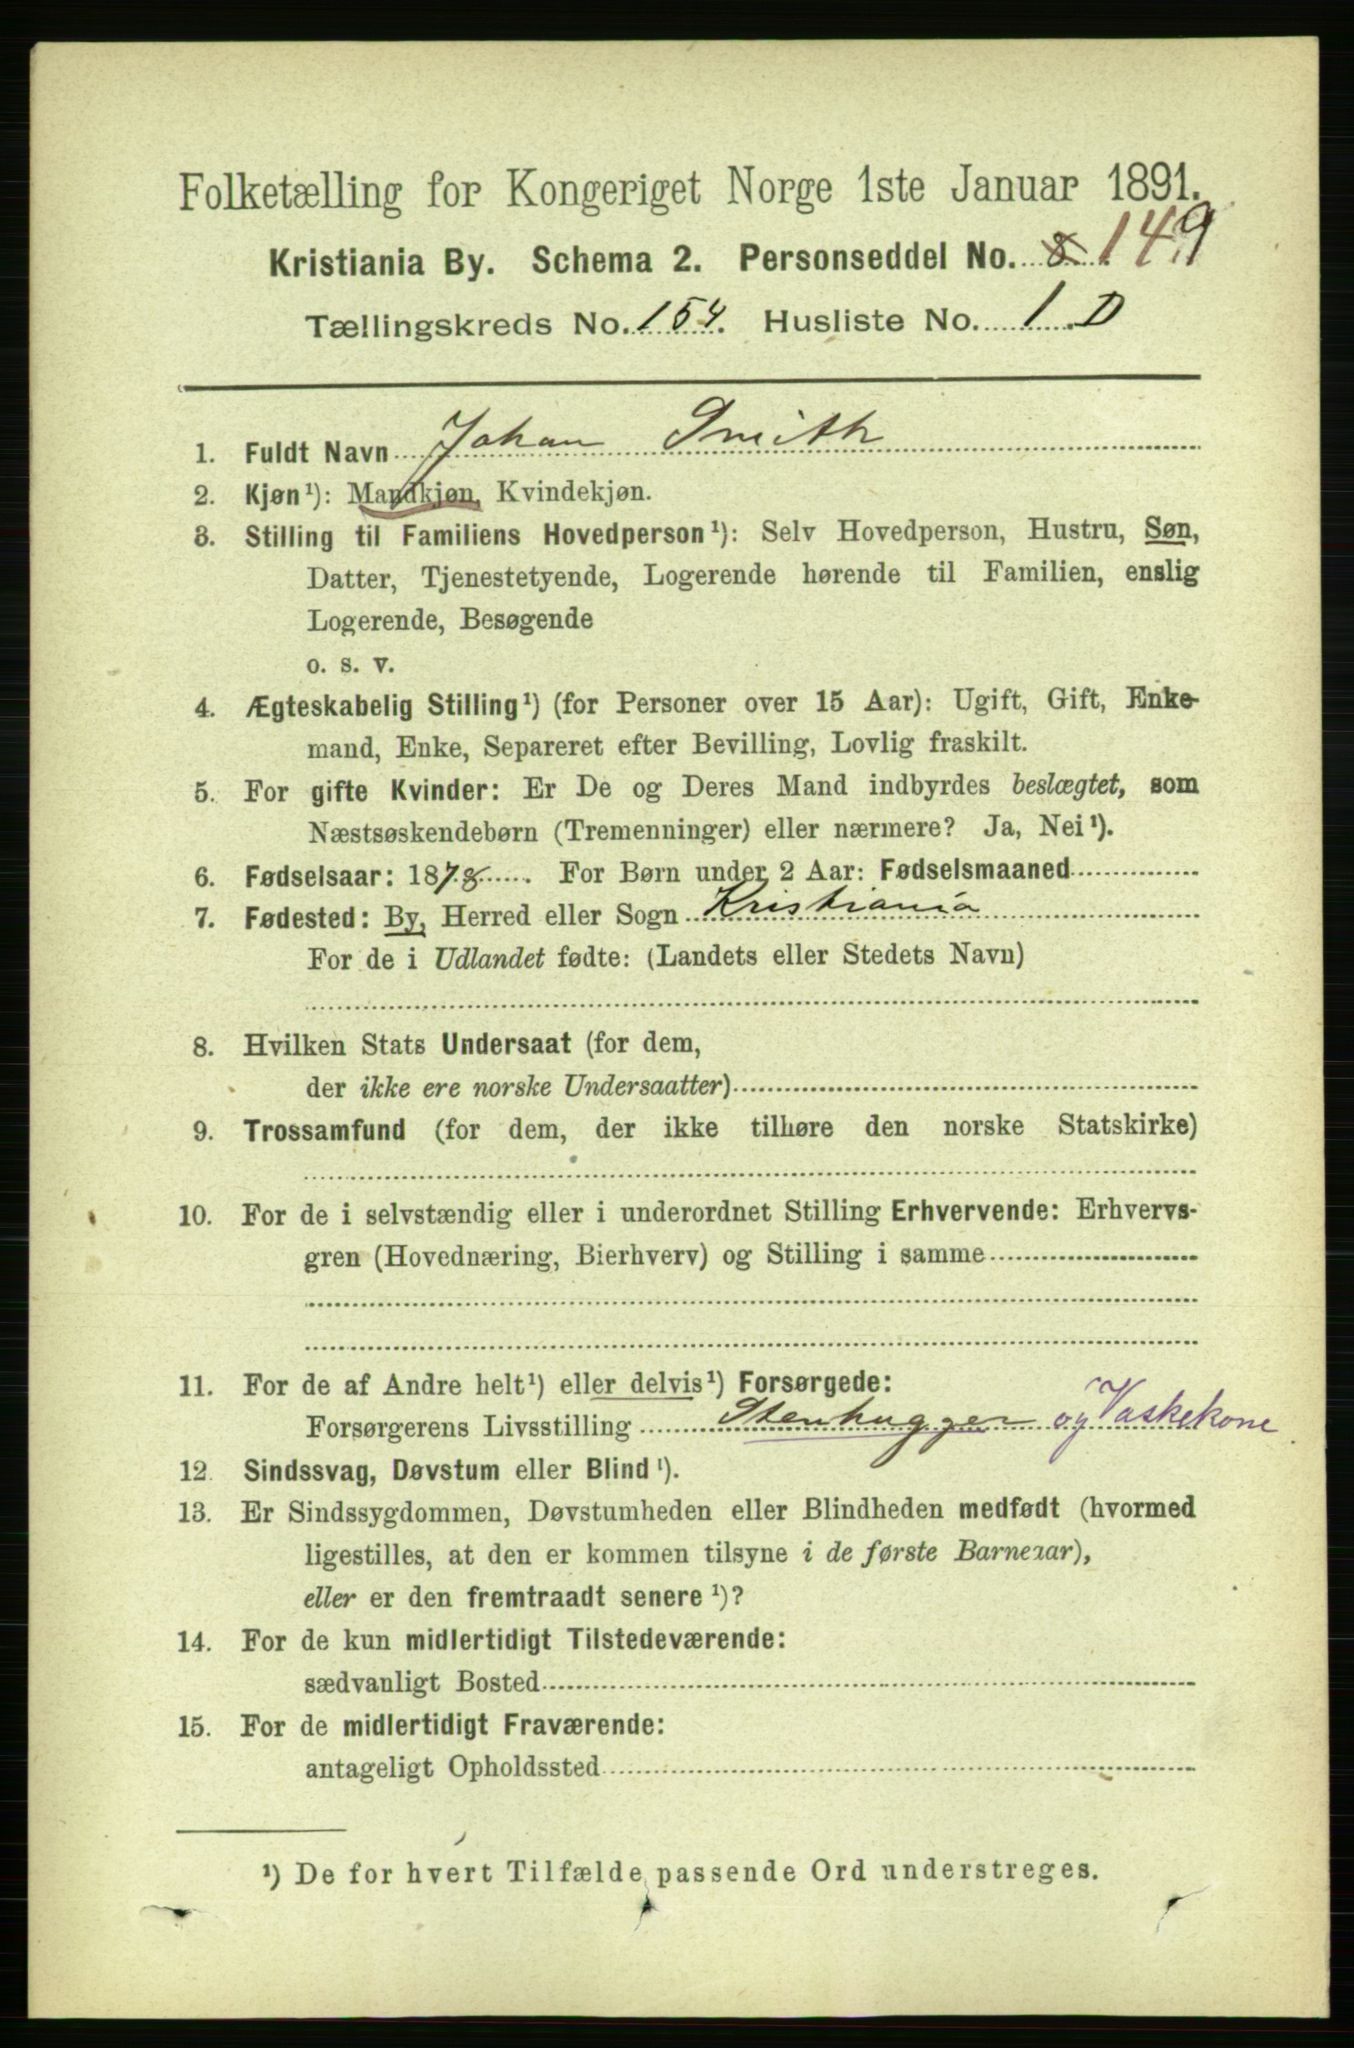 Folketælling for Kongeriget Norge 1ste Januar 1891.
Kristiania By. Schema 2. Personseddel No. 8 149
Tællingskreds No. 154. Husliste No. 1 D
1. Fuldt Navn Johan Smith
2. Kjøn¹): Mandkjøn, Kvindekjøn.
3. Stilling til Familiens Hovedperson¹): Selv Hovedperson, Hustru, Søn,
Datter, Tjenestetyende, Logerende hørende til Familien, enslig
Logerende, Besøgende
o. s. v.
4. Ægteskabelig Stilling¹) (for Personer over 15 Aar): Ugift, Gift, Enke-
mand, Enke, Separeret efter Bevilling, Lovlig fraskilt.
5. For gifte Kvinder: Er De og Deres Mand indbyrdes beslægtet, som
Næstsøskendebørn (Tremenninger) eller nærmere? Ja, Nei¹).
6. Fødselsaar: 1878. For Børn under 2 Aar: Fødselsmaaned
7. Fødested: By, Herred eller Sogn Kristiania
For de i Udlandet fødte: (Landets eller Stedets Navn)
8. Hvilken Stats Undersaat (for dem,
der ikke ere norske Undersaatter)
9. Trossamfund (for dem, der ikke tilhøre den norske Statskirke)
10. For de i selvstændig eller i underordnet Stilling Erhvervende: Erhvervs-
gren (Hovednæring, Bierhverv) og Stilling i samme
11. For de af Andre helt¹) eller delvis¹) Forsørgede:
Forsørgerens Livsstilling Stenhugger og Vaskekone
12. Sindssvag, Døvstum eller Blind¹).
13. Er Sindssygdommen, Døvstumheden eller Blindheden medfødt (hvormed
ligestilles, at den er kommen tilsyne i de første Barneaar),
eller er den fremtraadt senere¹)?
14. For de kun midlertidigt Tilstedeværende:
sædvanligt Bosted
15. For de midlertidigt Fraværende:
antageligt Opholdssted
¹) De for hvert Tilfælde passende Ord understreges.